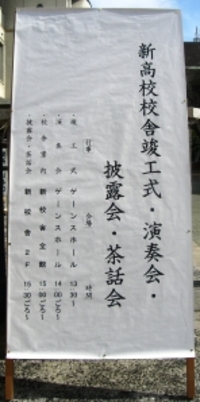 新高校校舎竣工式・演奏会・
披露会・茶話会
行事 会場 時間
・竣工式 ゲーンスホール 13:30〜
・演奏会 ゲーンスホール 14:00ごろ〜
・校舎案内 新校舎全館 15:00ごろ〜
・披露会・茶話会 新校舎2F 15:30ごろ〜